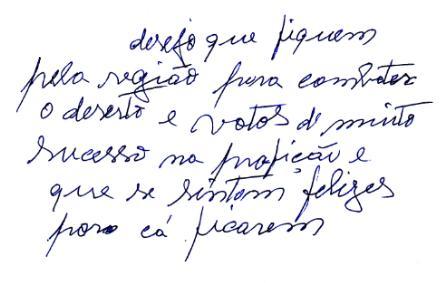 desejo que fiquem
pela região para combater
o deserto e votos de muito
sucesso na profição e
que se sintam felizes
para cá ficarem